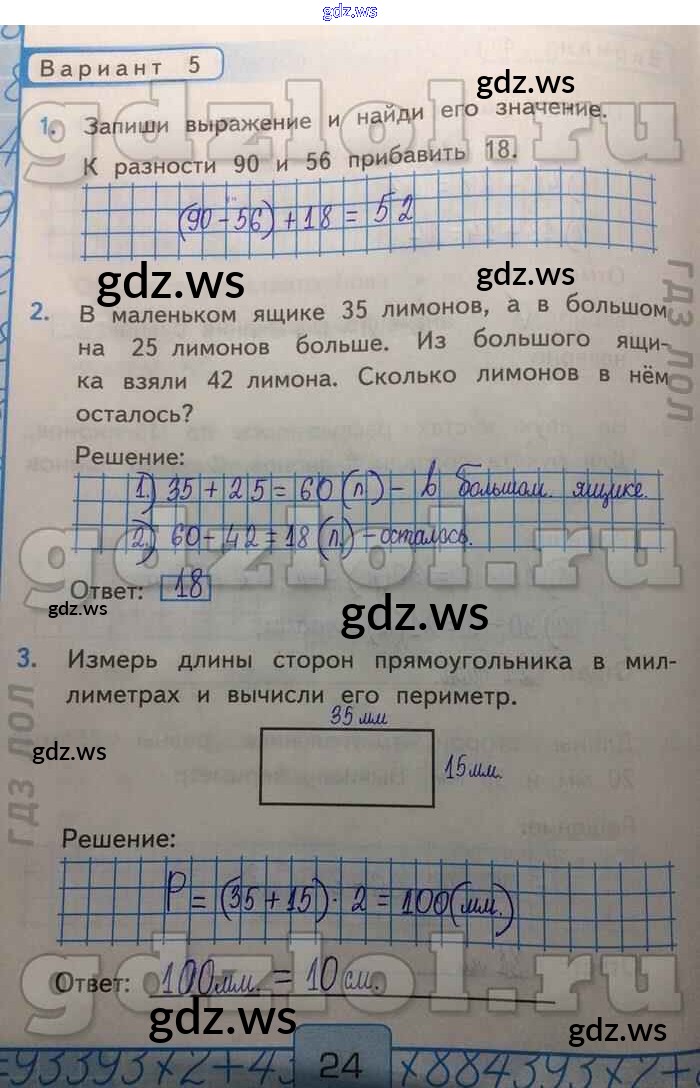 gdz.ws
Вариант 5
gdz.ws
gdzlol.ru
1. Запиши выражение и найди его значение.
К разности 90 и 56 прибавить 18.
(90-56)+18=52
gdz.ws
gdz.ws
ГДЗ ЛОЛ
2. В маленьком ящике 35 лимонов, а в большом
на 25 лимонов больше. Из большого ящи-
ка взяли 42 лимона. Сколько лимонов в нём
осталось?
Решение:
1.) 35+25=60(л.)- в большом. ящике.
2.) 60-42=18(л.)-осталось.
gdzlol.ru
Ответ: 18
gdz.ws
gdz.ws
3. Измерь длины сторон прямоугольника в мил-
лиметрах и вычисли его периметр.
35 мм
gdz.ws
15мм.
gdz.ws
ГДЗ ЛОЛ
Решение:
P=(35+15)·2=100(мм.)
gdzlol.ru
Ответ: 100мм.=10см.
gdz.ws
gdz.ws
24